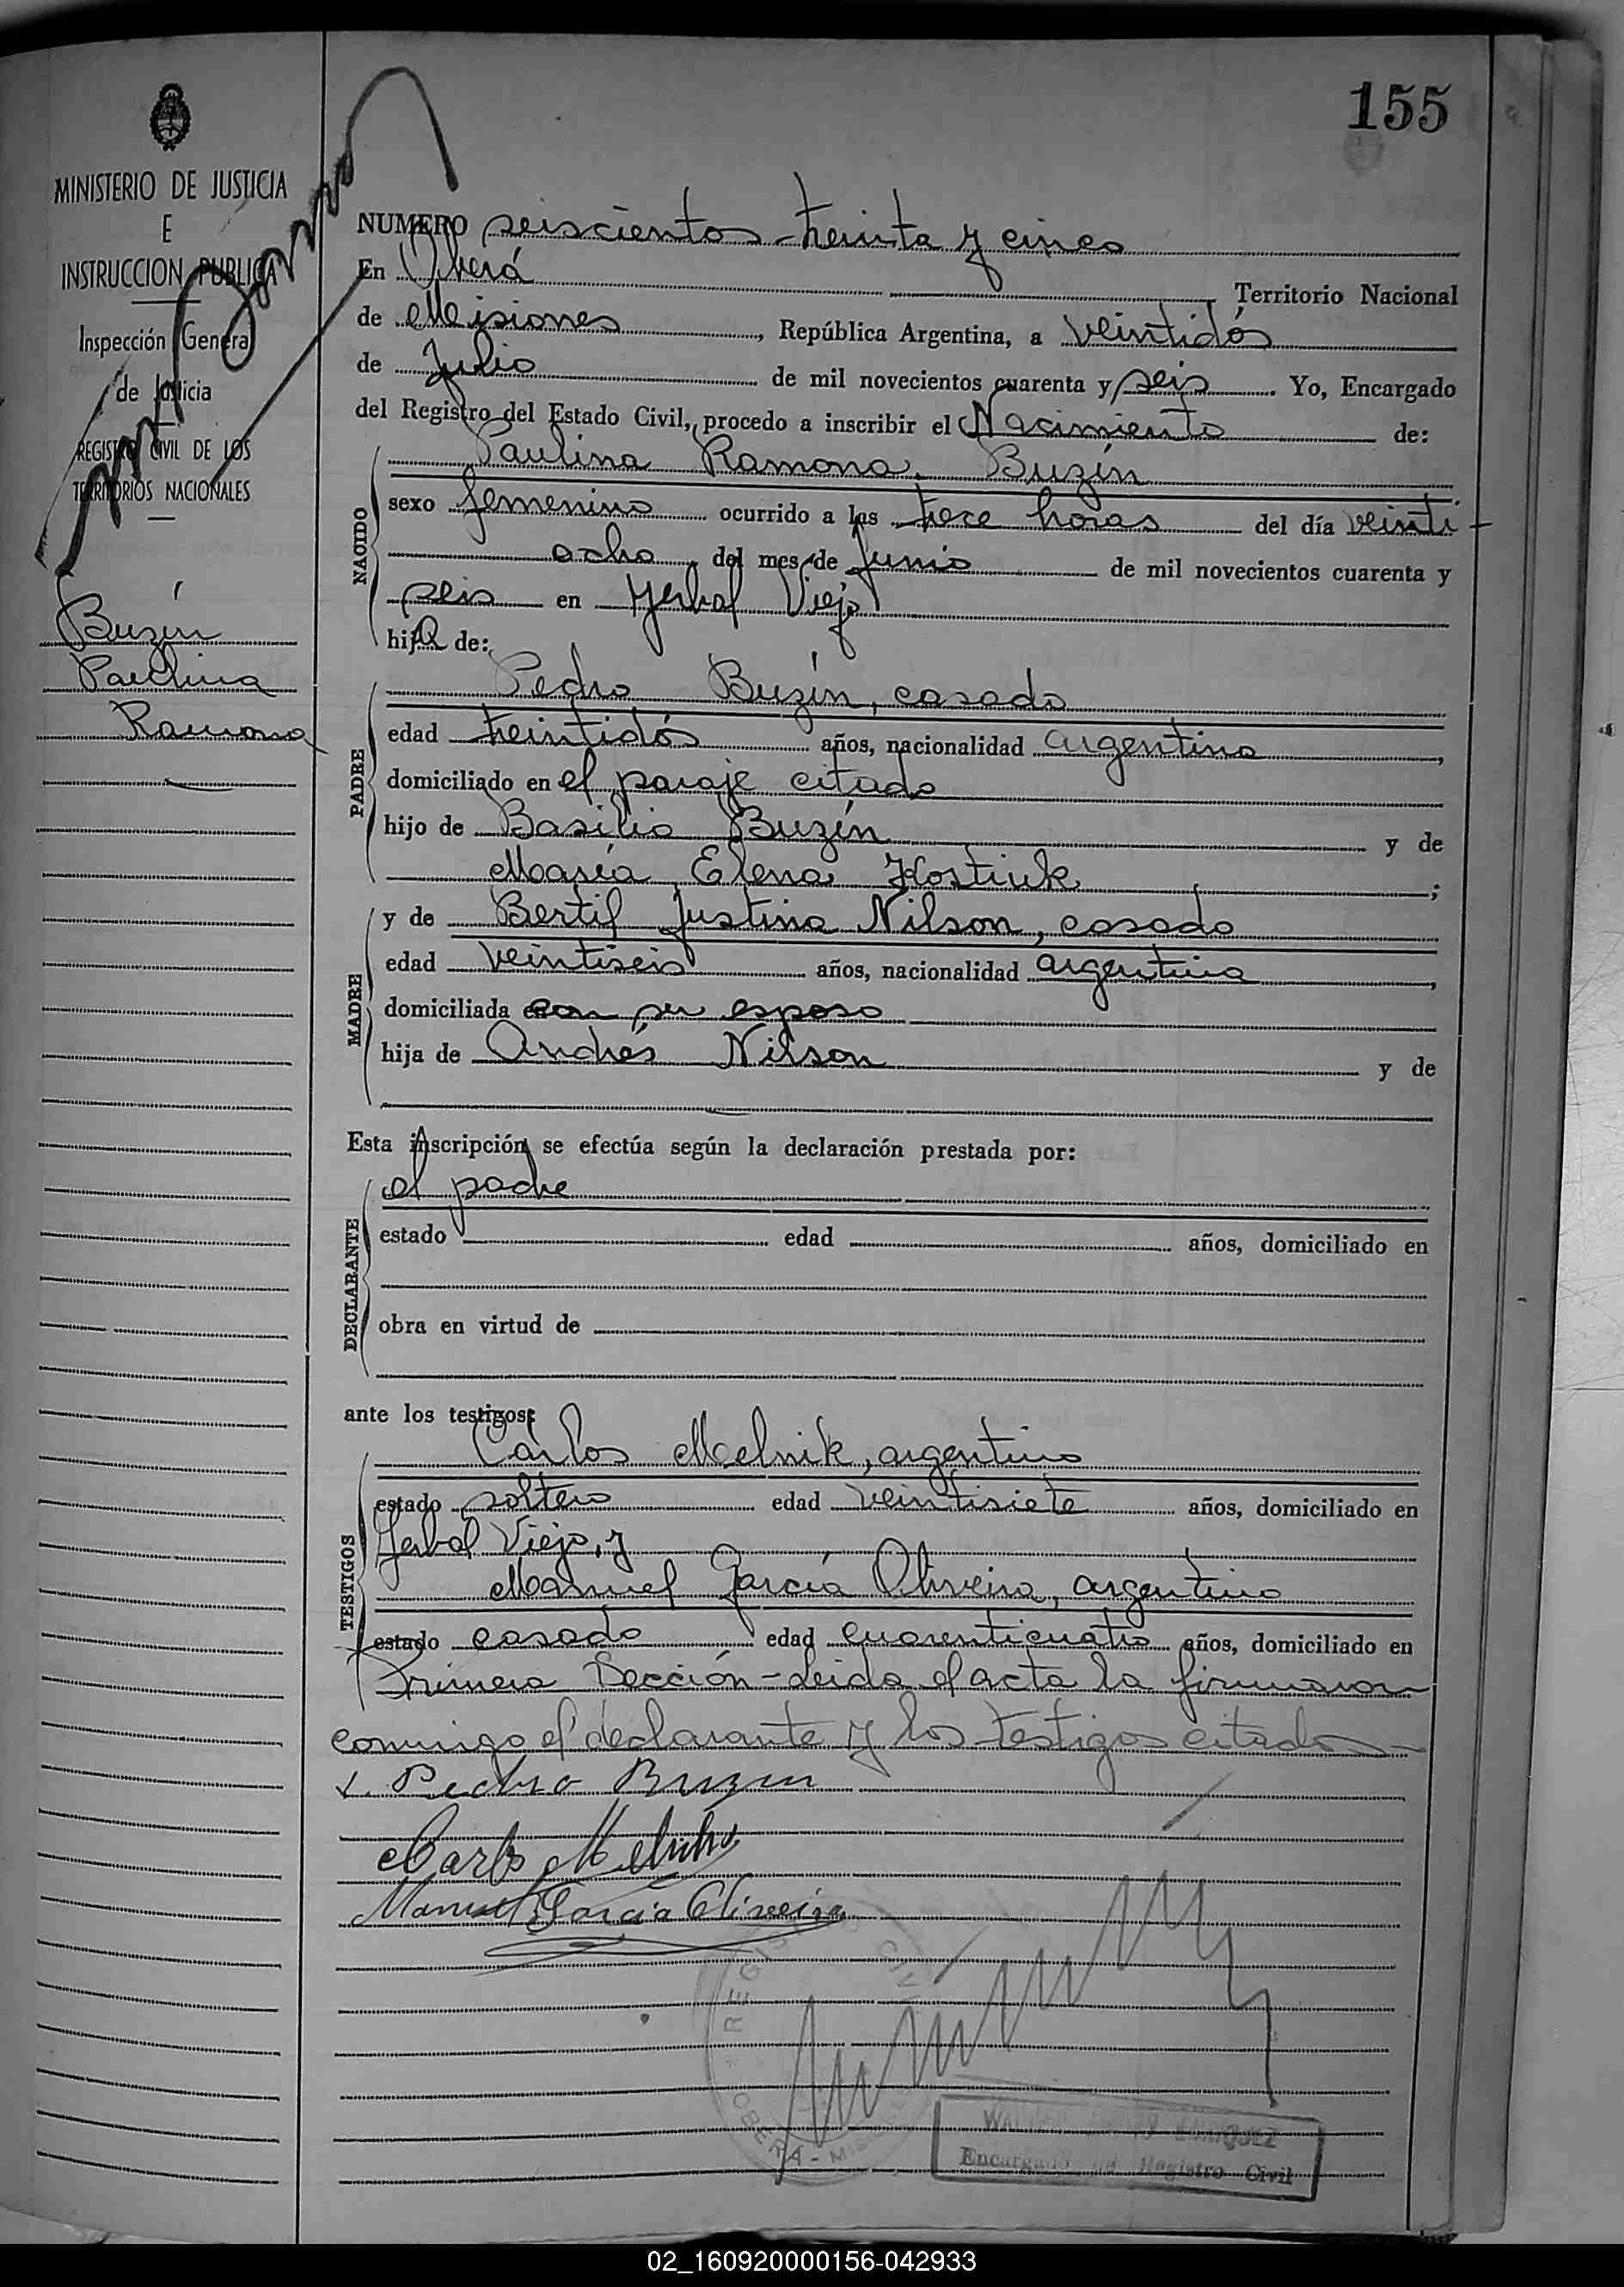 155
MINISTERIO DE JUSTICIA
E
INSTRUCCION PUBLICA
Inspección General
de Justicia
REGISTRO CIVIL DE LOS
TERRITORIOS NACIONALES
Buzín
Paulina
Ramona
NUMERO seiscientos treinta y cinco
En Oberá Territorio Nacional
de Misiones, República Argentina, a veintidós
de Julio de mil novecientos cuarenta y seis. Yo, Encargado
del Registro del Estado Civil, procedo a inscribir el Nacimiento de:
NACIDO
Paulina Ramona Buzín
sexo femenino ocurrido a las trece horas del día veinti-
ocho del mes de Junio de mil novecientos cuarenta y
seis en Yerbal Viejo
hija de:
PADRE
Pedro Buzín, casado
edad treintidós años, nacionalidad argentina,
domiciliado en el paraje citado
hijo de Basilio Buzín y de
María Elena Kostiuk;
MADRE
y de Bertil Justina Nilson, casada
edad veintiseis años, nacionalidad argentina,
domiciliada con su esposo
hija de Andrés Nilson y de
Esta inscripción se efectúa según la declaración prestada por:
DECLARANTE
el padre
estado edad años, domiciliado en
obra en virtud de
ante los testigos:
TESTIGOS
Carlos Melnik, argentino
estado soltero edad veintisiete años, domiciliado en
Yerbal Viejo, y
Manuel García Oliveira, argentino
estado casado edad cuarenticuatro años, domiciliado en
Primera Sección - Leida el acta la firmaron
conmigo el declarante y los testigos citados -
Pedro Buzin
Carlos Melnik
Manuel García Oliveira
REGISTRO CIVIL
OBERA - MISIONES
Encargado del Registro Civil
02_160920000156-042933